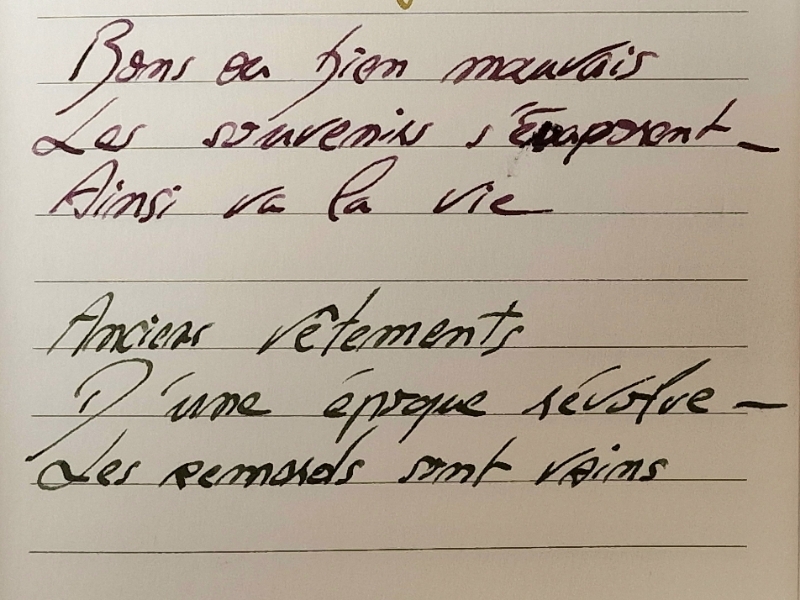 Bons ou bien mauvais
Les souvenirs s'évaporent _
Ainsi va la vie
Anciens vêtements
D'une époque révolue —
Les remords sont vains